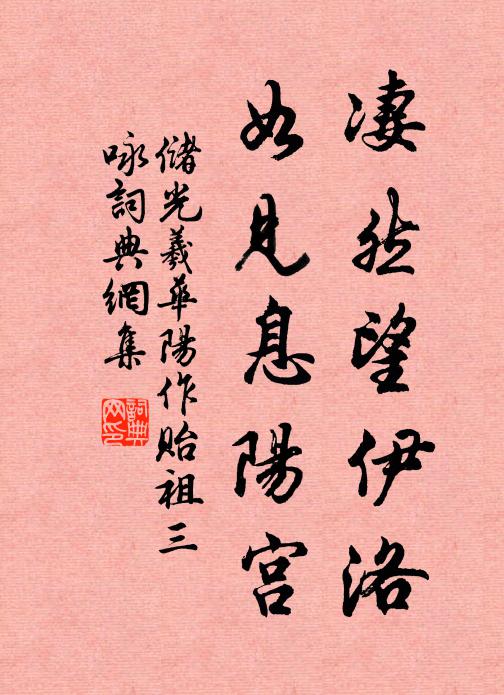 凄然望伊洛
如见息陽宫
储光羲華陽作貽祖三
咏詞典網集
詞典
网印